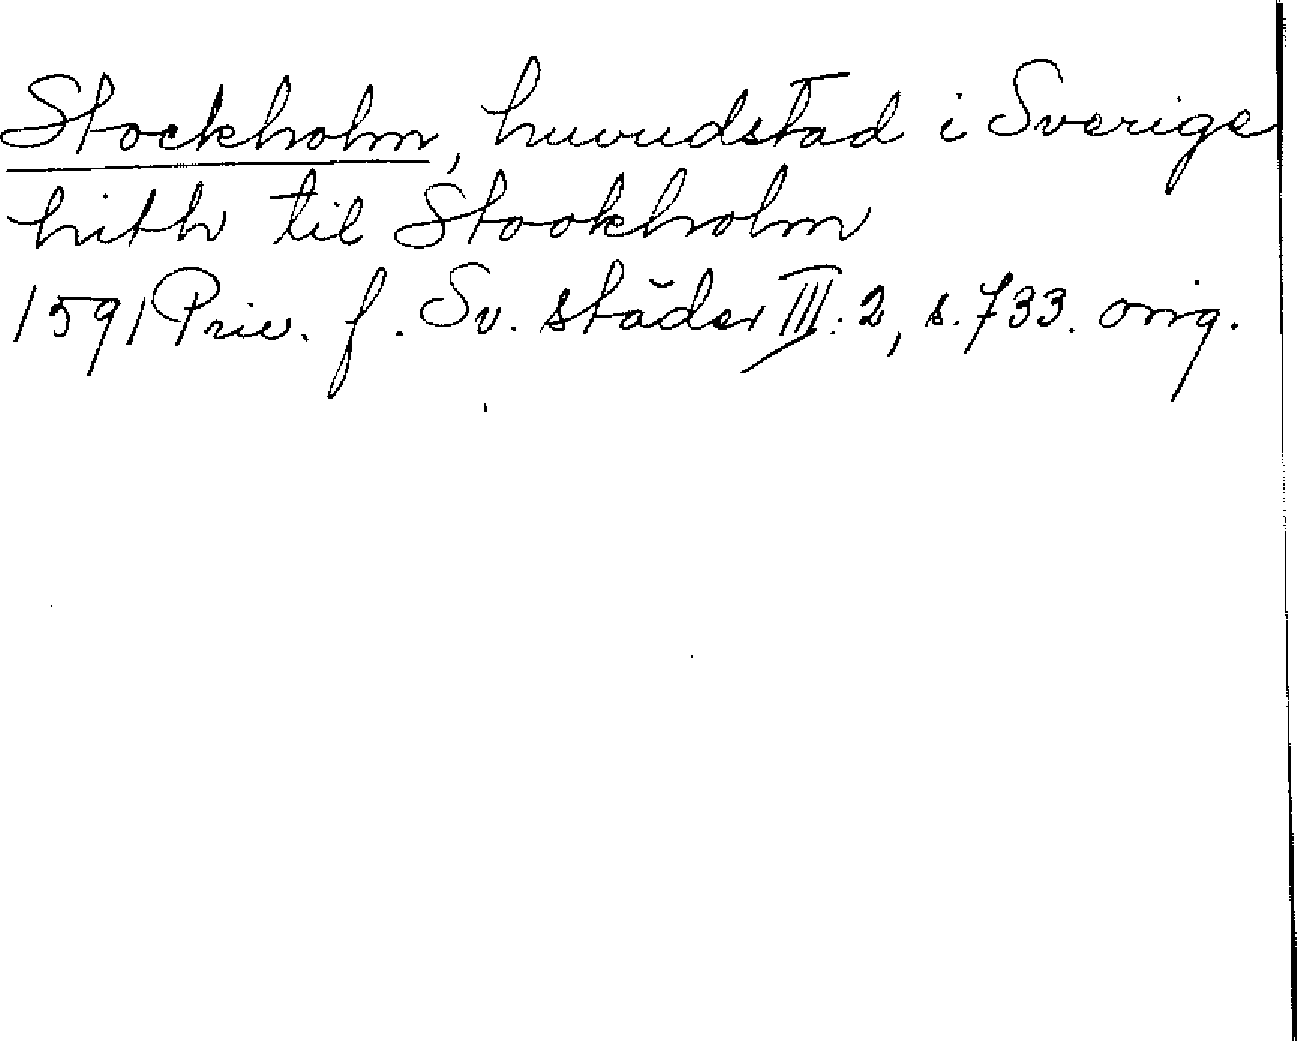 Stockholm, huvudstad i Sverige
hith til Stockholm
1591 Priv. f. Sv. städer III:2, s. 733. orig.